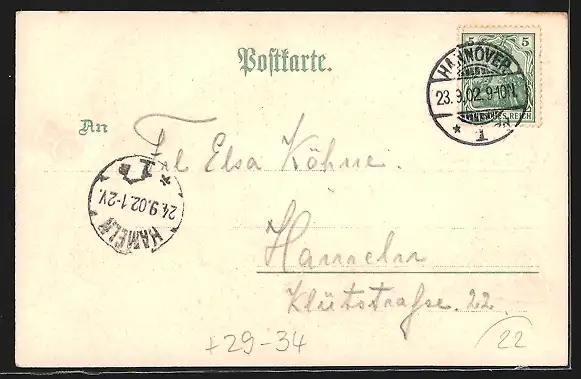 Postkarte.
5 5
HANNOVER
23.9.02.9-10N.
* 1
REICH
An
Frl Elsa Köhne.
HAMELN
24.9.02.1-2V.
* 1
Hameln
Klütstraße. 22.
+29-34
22